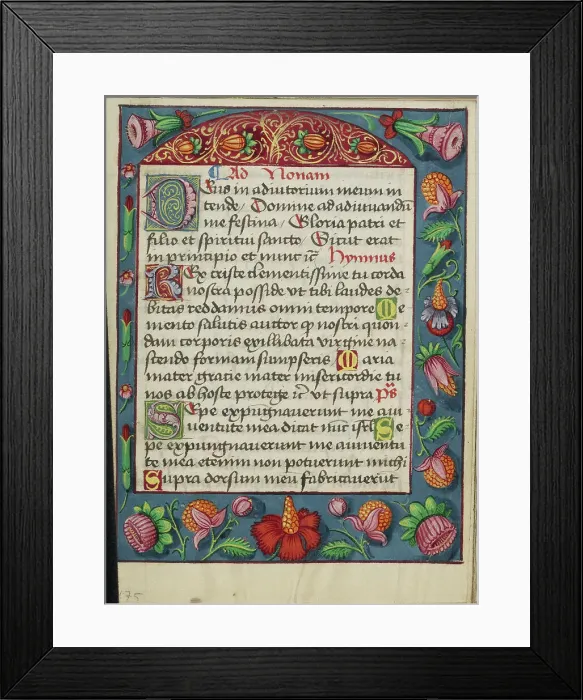 Ad Nonam
Deus in adiutorium meum in
tende Domine ad adiuvandū
me festina Gloria patri et
filio et spiritui sancto Sicut erat
in principio et nunc ic̄ Hymnus
Rex criste clementissime tu corda
nostra posside vt tibi laudes de-
bitas reddamus omni tempore Me
mento salutis auctor q nostri quon-
dam corporis ex illibata virgine na-
scendo formam sumpseris Maria
mater gracie mater misericordie tu
nos ab hoste protege ic̄ vt supra Ps
Sepe expugnauerunt me a iu
uentute mea dicat nūc isrl Se
pe expungnauerunt me a iuuentu
te mea etenim non potuerunt michi
Supra dorsum meum fabricauerūt
175